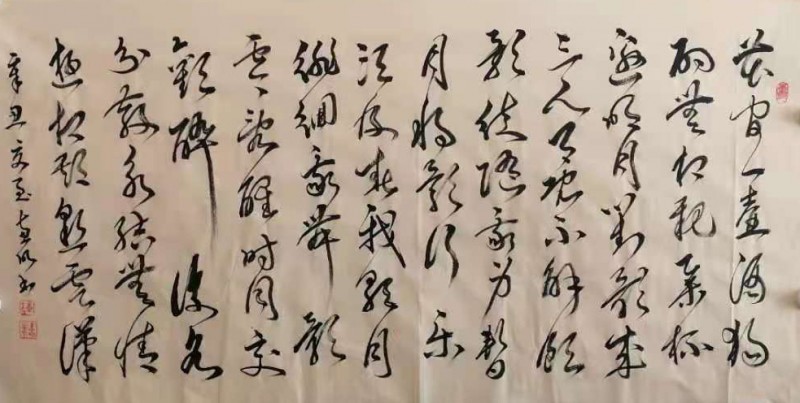 花間一壺酒獨
酌無相親舉杯
邀明月對影成
三人月既不解飲
影徒隨我身暫
月將影行樂
須及春我歌月
徘徊我舞影
零亂醒時同交
歡醉後各
分散永結無情
遊相期邈雲漢
辛丑夏至書